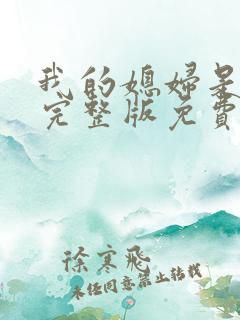 我的媳妇是
完整版免費
徐寒飛
未经同意禁止转载